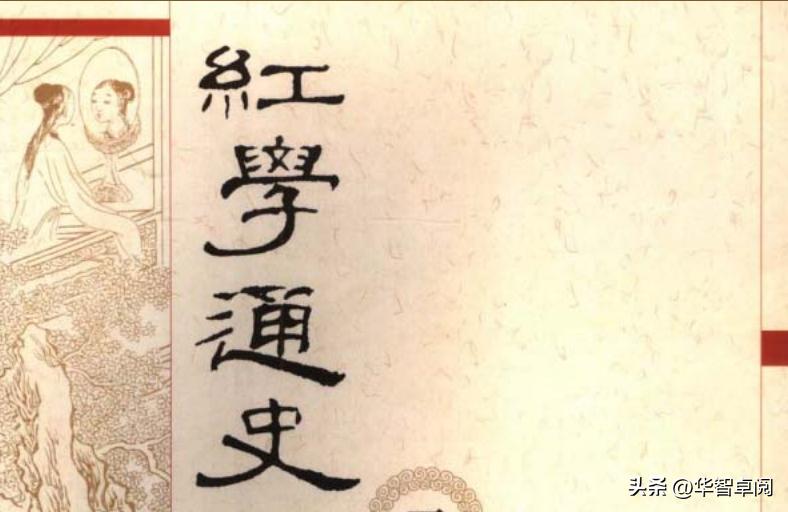 紅學通史
头条 @华智卓阅